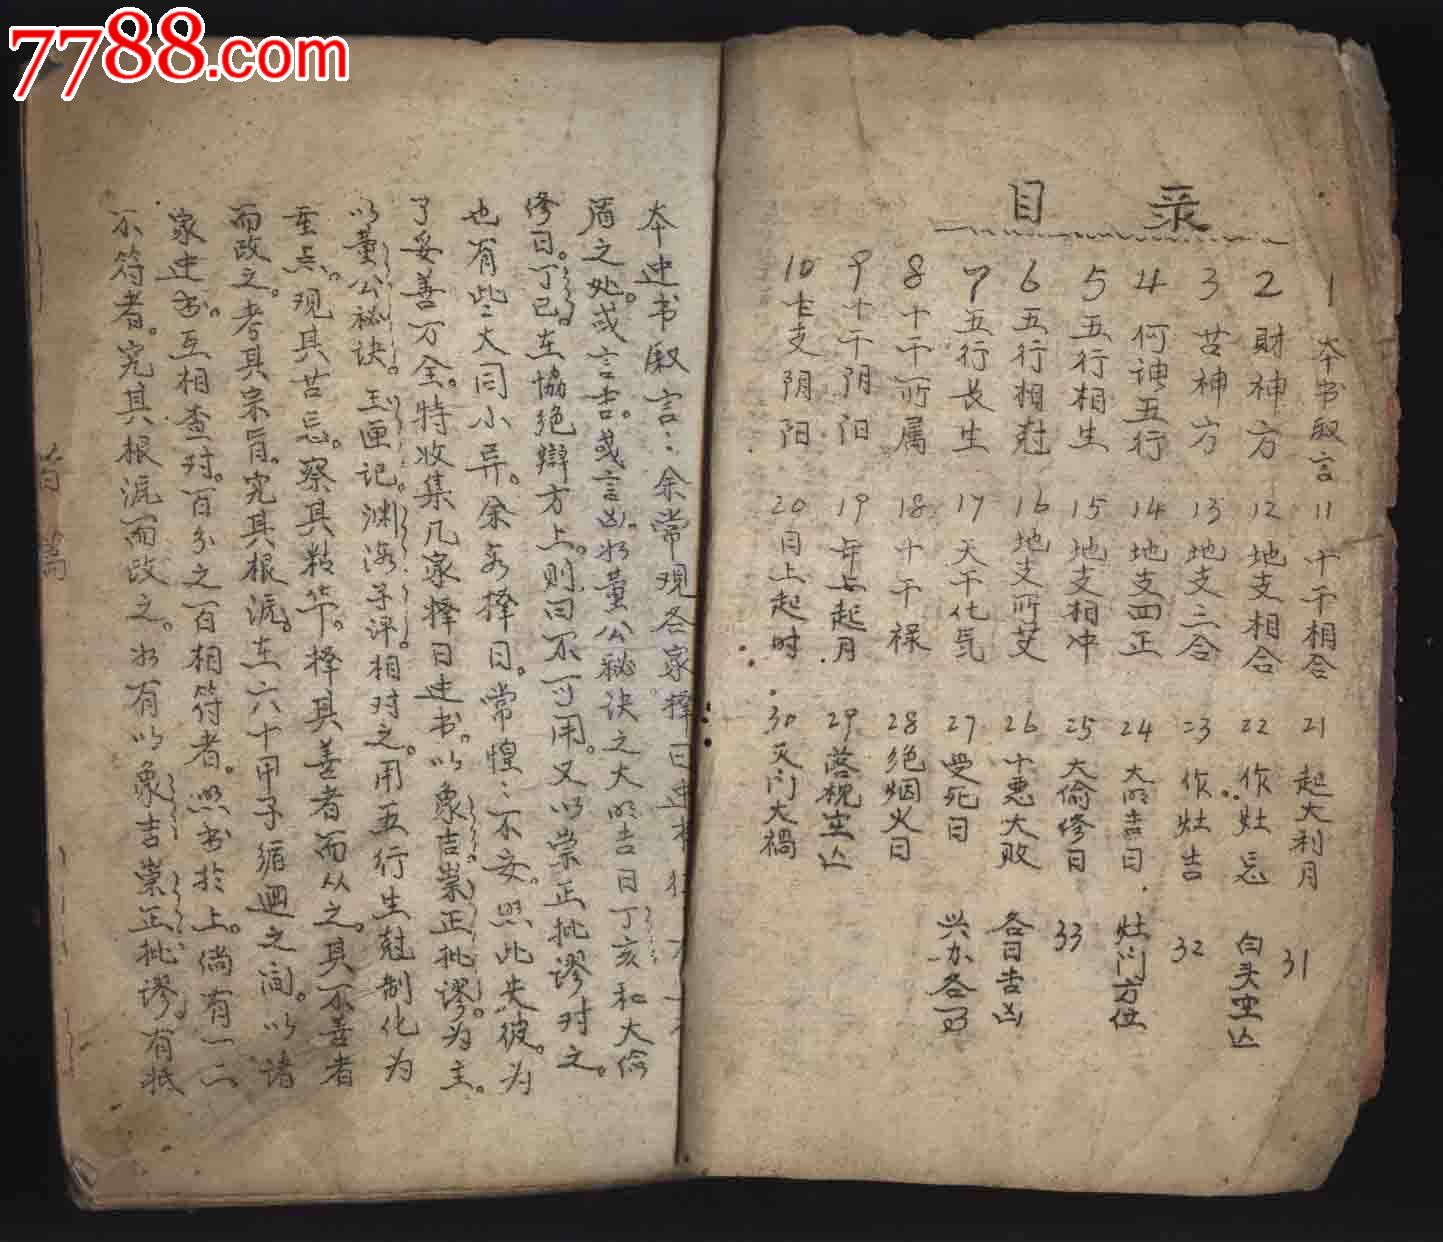 7788.com
中国收藏热线
目录
1 本书叙言
2 财神方
3 苦神方
4 何神五行
5 五行相生
6 五行相尅
7 五行长生
8 十干所属
9 十干阴阳
10 十支阴阳
11 十干相合
12 地支相合
13 地支三合
14 地支四正
15 地支相冲
16 地支所艾
17 天干化气
18 十干禄
19 年上起月
20 日上起时
21 起大利月
22 作灶忌
23 作灶吉
24 大明吉日
25 大偷修日
26 十恶大败
27 受死日
28 绝烟火日
29 落枕空亡
30 灭门大祸
31 白头空亡
32 灶门方位
33 各日吉凶
兴水各
本史书叙言：余常观各家择日史书
盾之处。或言吉。或言凶。如董公秘诀之大明吉日丁亥和大偷
修日。丁已。在协绝辩方上。则曰不可用。又以崇正批谬对之。
也有些大同小异。余每择日。常惶不安。照此失彼。为
了妥善万全。特收集几家择日史书。以象吉崇正批谬。为主。
以董公秘诀。玉匣记。渊海子评相对之。用五行生尅制化为
重点。观其苦忌。察其精华。择其善者而从之。其不善者
而改之。考其宗旨。究其根源。在六十甲子循迴之间。以诸
家史书。互相查对。百分之百相符者。照书於上。倘有一二
不符者。究其根源而改之。如有以象吉崇正批谬。有抵
首篇